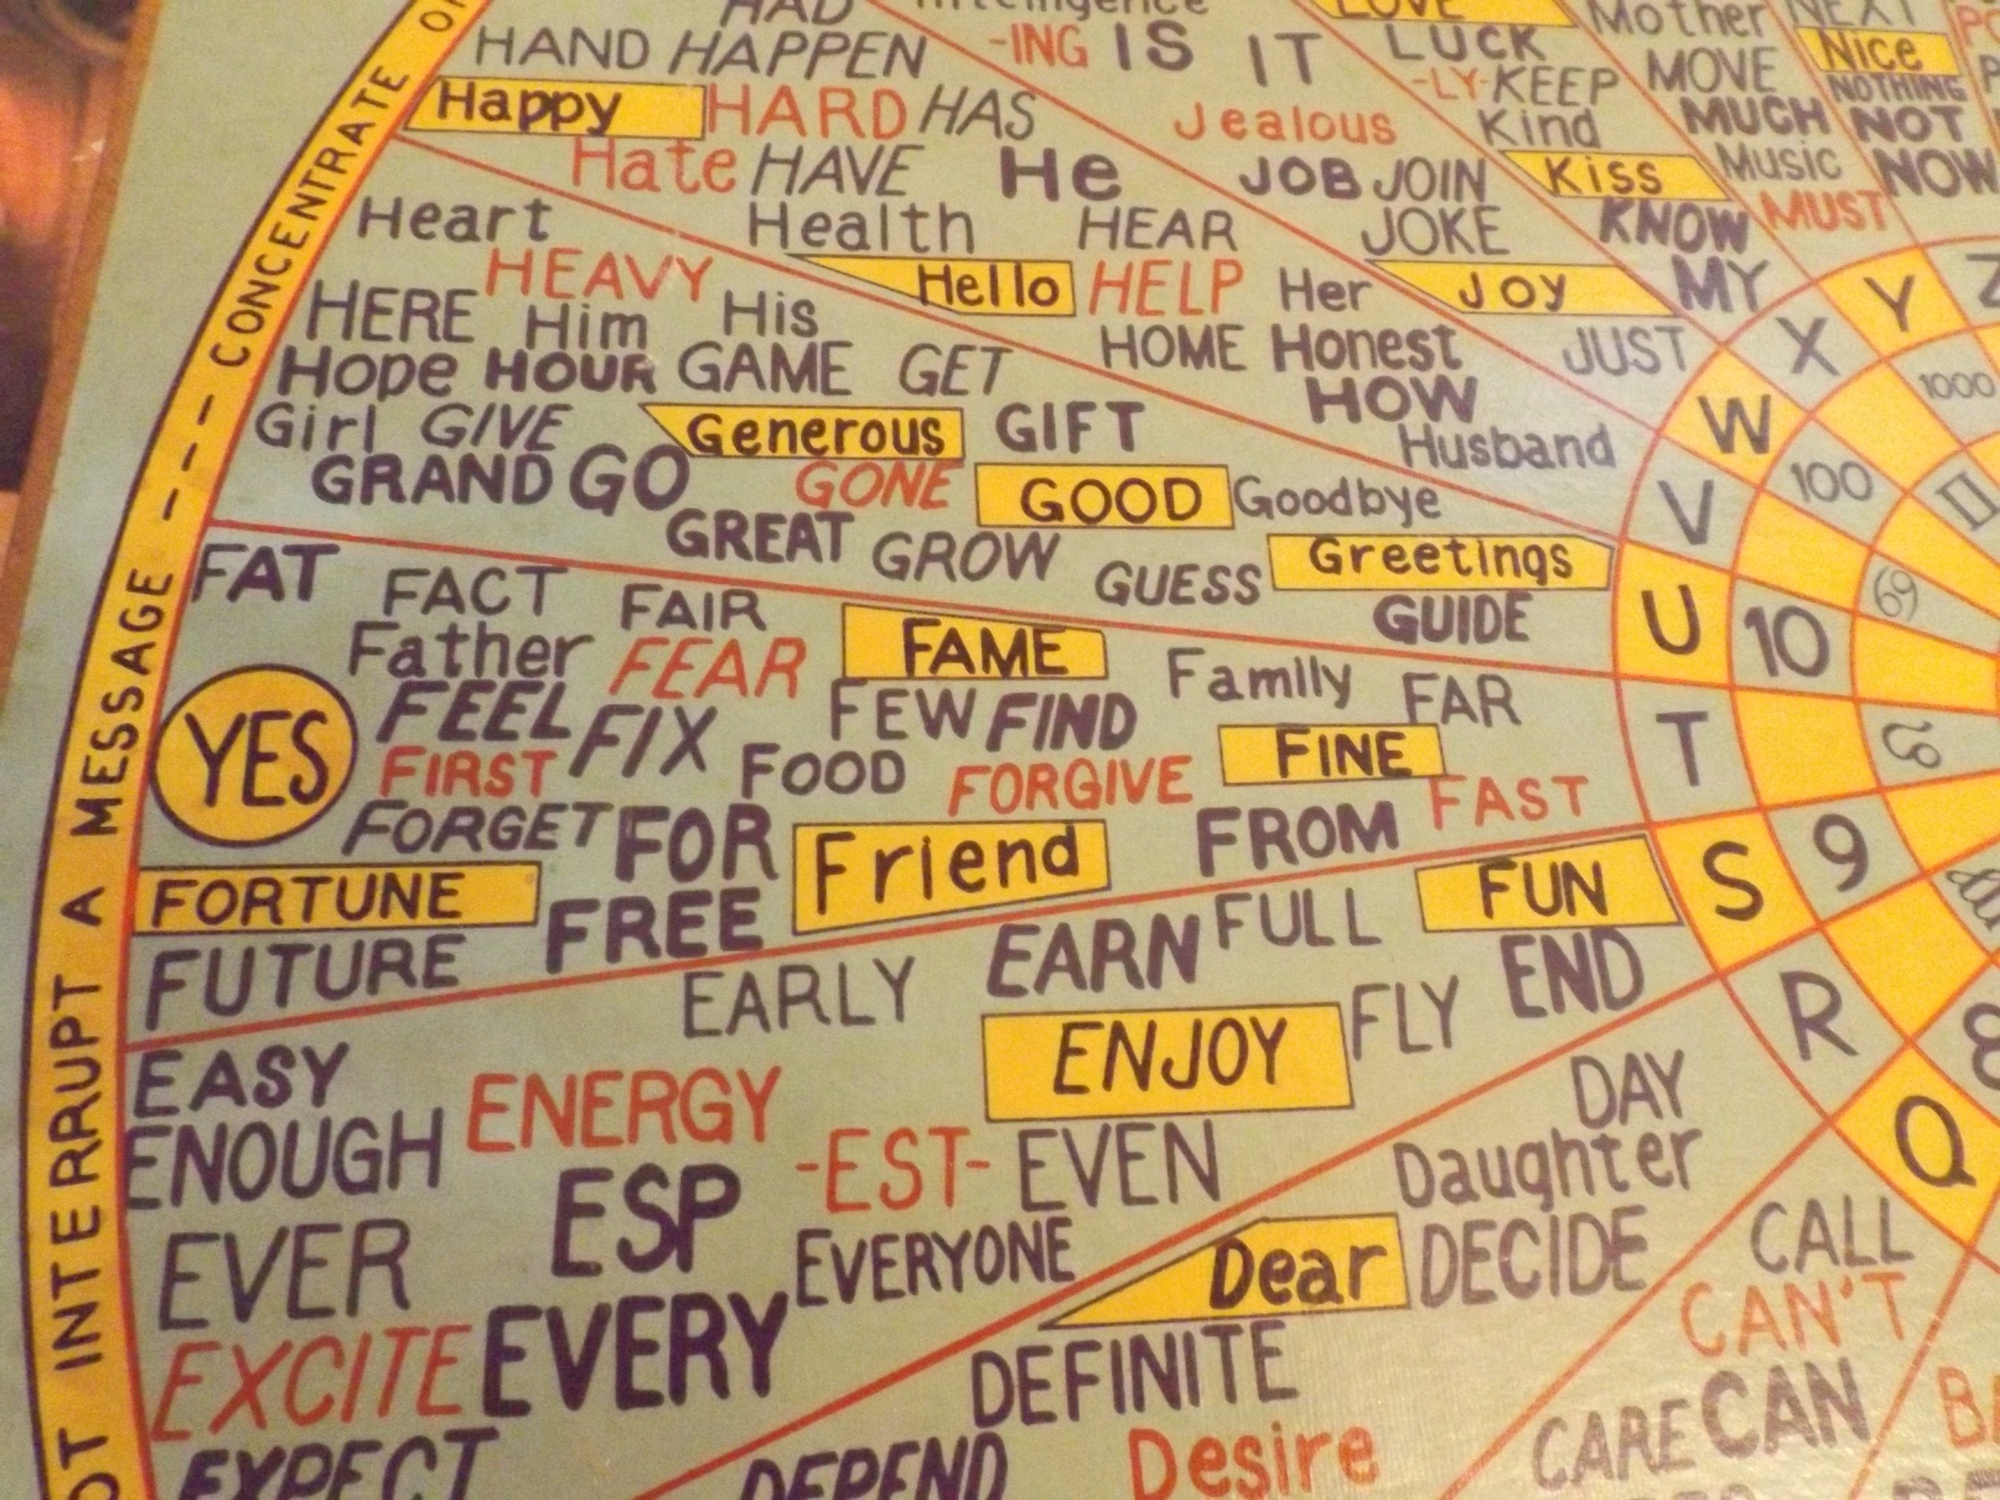 HAD
HAND HAPPEN
Happy HARD HAS
Hate HAVE He
Heart Health HEAR
HEAVY Hello HELP Her
HERE Him His HOME Honest
Hope HOUR HOW
Husband
Intelligence
-ING IS IT
Jealous
JOB JOIN
JOKE
Joy
JUST
LOVE
LUCK
-LY- KEEP
Kind
Kiss
KNOW
Mother
MOVE
MUCH
Music
MUST
MY
NEXT
Nice
NOTHING
NOT
NOW
GAME GET
Girl GIVE Generous GIFT
GRAND GO GONE GOOD Goodbye
GREAT GROW GUESS Greetings
GUIDE
FAT FACT FAIR FAME
Father FEAR Family FAR
YES FEEL FIX FEW FIND FINE
FIRST FOOD FORGIVE FAST
FORGET FOR Friend FROM
FORTUNE FREE FULL FUN
FUTURE
EARLY EARN END
EASY ENERGY ENJOY FLY
ENOUGH ESP -EST- EVEN
EVER EVERYONE
EXCITE EVERY
EXPECT
DAY
Daughter
Dear DECIDE
DEFINITE
DEPEND Desire
CALL
CAN'T
CARE CAN
Y
X
W
V
U
T
S
R
Q
1000
100
10
9
8
69
INTERRUPT A MESSAGE ---- CONCENTRATE